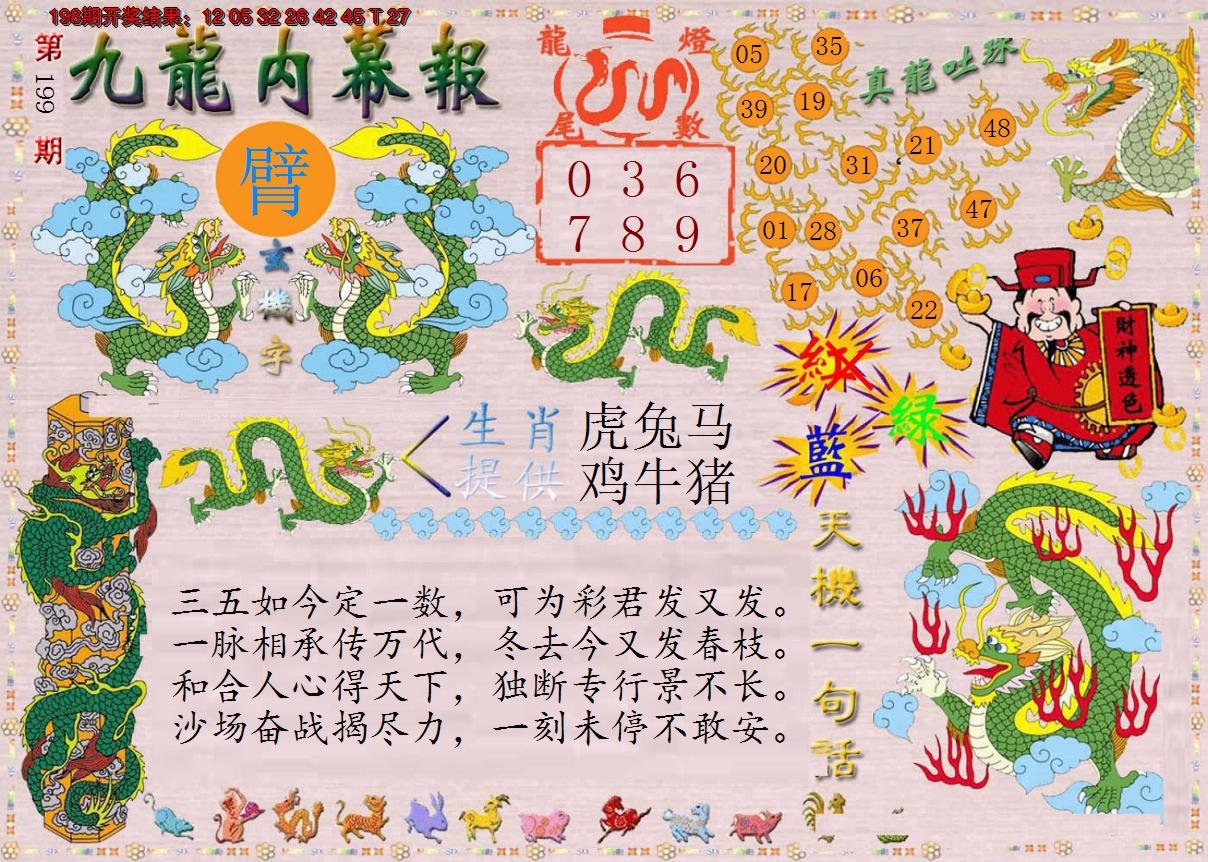 198期开奖结果：12 05 32 26 42 45 T 27
第199期
九龍内幕報
臂
玄機字
龍燈尾數
0 3 6
7 8 9
真龍吐珠
05 35
39 19
20 31 21 48
01 28 37 47
17 06 22
財神透色
紅
綠
藍
生肖提供
虎兔马
鸡牛猪
三五如今定一数，可为彩君发又发。
一脉相承传万代，冬去今又发春枝。
和合人心得天下，独断专行景不长。
沙场奋战揭尽力，一刻未停不敢安。
天機一句話